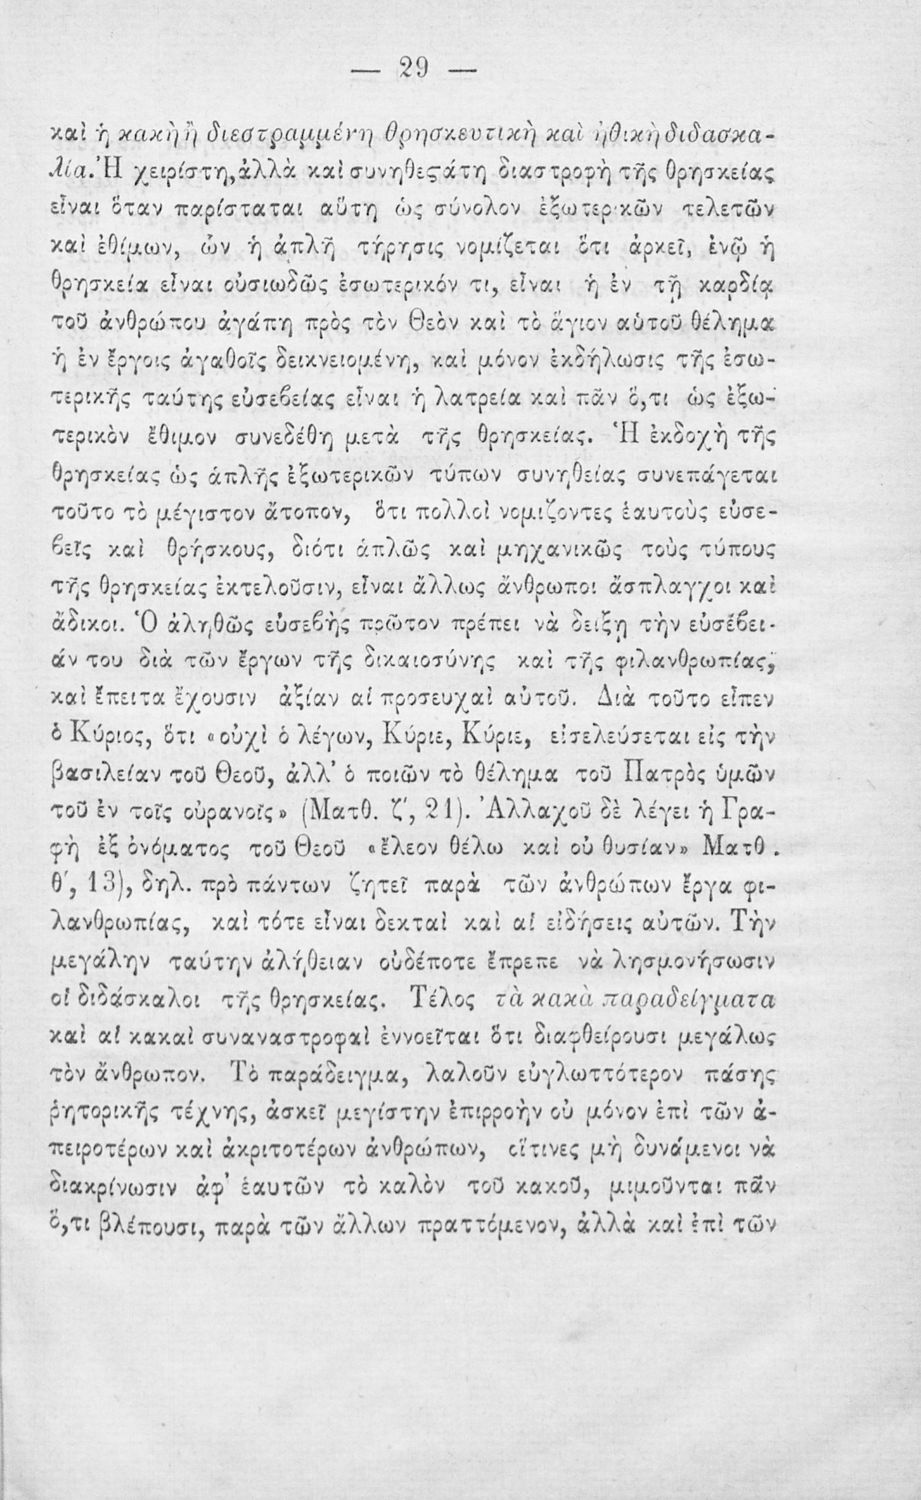 — 29 —
καὶ ἡ κακὴ ἢ διεστραμμένη θρησκευτικὴ καὶ ἠθικὴ διδασκα-
λία. Ἡ χειρίστη, ἀλλὰ καὶ συνηθεστάτη διαστροφὴ τῆς θρησκείας
εἶναι ὅταν παρίσταται αὕτη ὡς σύνολον ἐξωτερικῶν τελετῶν
καὶ ἐθίμων, ὧν ἡ ἁπλῆ τήρησις νομίζεται ὅτι ἀρκεῖ, ἐνῷ ἡ
θρησκεία εἶναι οὐσιωδῶς ἐσωτερικόν τι, εἶναι ἡ ἐν τῇ καρδίᾳ
τοῦ ἀνθρώπου ἀγάπη πρὸς τὸν Θεὸν καὶ τὸ ἅγιον αὑτοῦ θέλημα
ἡ ἐν ἔργοις ἀγαθοῖς δεικνειομένη, καὶ μόνον ἐκδήλωσις τῆς ἐσω-
τερικῆς ταύτης εὐσεβείας εἶναι ἡ λατρεία καὶ πᾶν ὅ,τι ὡς ἐξω-
τερικὸν ἔθιμον συνεδέθη μετὰ τῆς θρησκείας. Ἡ ἐκδοχὴ τῆς
θρησκείας ὡς ἁπλῆς ἐξωτερικῶν τύπων συνηθείας συνεπάγεται
τοῦτο τὸ μέγιστον ἄτοπον, ὅτι πολλοὶ νομίζοντες ἑαυτοὺς εὐσε-
βεῖς καὶ θρήσκους, διότι ἁπλῶς καὶ μηχανικῶς τοὺς τύπους
τῆς θρησκείας ἐκτελοῦσιν, εἶναι ἄλλως ἄνθρωποι ἄσπλαγχοι καὶ
ἄδικοι. Ὁ ἀληθῶς εὐσεβὴς πρῶτον πρέπει νὰ δείξῃ τὴν εὐσέβει-
άν του διὰ τῶν ἔργων τῆς δικαιοσύνης καὶ τῆς φιλανθρωπίας,
καὶ ἔπειτα ἔχουσιν ἀξίαν αἱ προσευχαὶ αὐτοῦ. Διὰ τοῦτο εἶπεν
ὁ Κύριος, ὅτι «οὐχὶ ὁ λέγων, Κύριε, Κύριε, εἰσελεύσεται εἰς τὴν
βασιλείαν τοῦ Θεοῦ, ἀλλ' ὁ ποιῶν τὸ θέλημα τοῦ Πατρὸς ὑμῶν
τοῦ ἐν τοῖς οὐρανοῖς» (Ματθ. ζ', 21). Ἀλλαχοῦ δὲ λέγει ἡ Γρα-
φὴ ἐξ ὀνόματος τοῦ Θεοῦ «ἔλεον θέλω καὶ οὐ θυσίαν» Ματθ.
θ', 13), δηλ. πρὸ πάντων ζητεῖ παρὰ τῶν ἀνθρώπων ἔργα φι-
λανθρωπίας, καὶ τότε εἶναι δεκταὶ καὶ αἱ εἰδήσεις αὐτῶν. Τὴν
μεγάλην ταύτην ἀλήθειαν οὐδέποτε ἔπρεπε νὰ λησμονήσωσιν
οἱ διδάσκαλοι τῆς θρησκείας. Τέλος τὰ κακὰ παραδείγματα
καὶ αἱ κακαὶ συναναστροφαὶ ἐννοεῖται ὅτι διαφθείρουσι μεγάλως
τὸν ἄνθρωπον. Τὸ παράδειγμα, λαλοῦν εὐγλωττότερον πάσης
ῥητορικῆς τέχνης, ἀσκεῖ μεγίστην ἐπιρροὴν οὐ μόνον ἐπὶ τῶν ἀ-
πειροτέρων καὶ ἀκριτοτέρων ἀνθρώπων, οἵτινες μὴ δυνάμενοι νὰ
διακρίνωσιν ἀφ' ἑαυτῶν τὸ καλὸν τοῦ κακοῦ, μιμοῦνται πᾶν
ὅ,τι βλέπουσι, παρὰ τῶν ἄλλων πραττόμενον, ἀλλὰ καὶ ἐπὶ τῶν